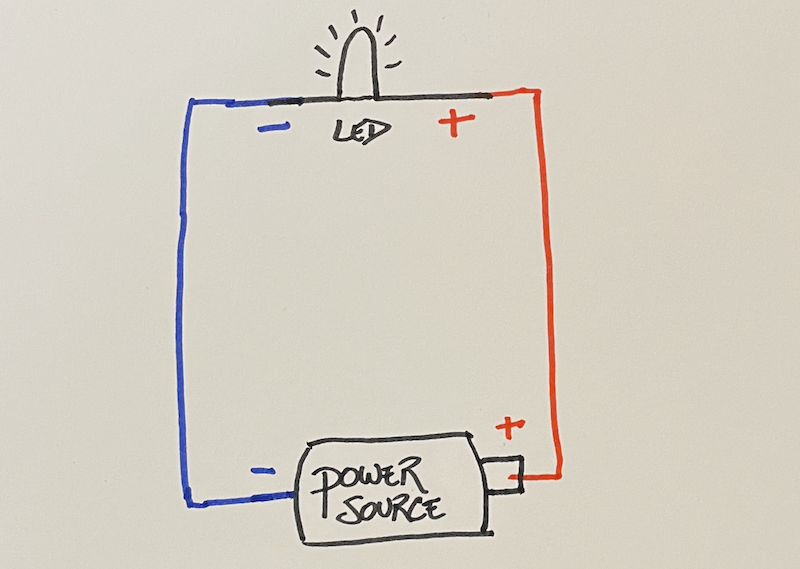 - LED +
+
- POWER
SOURCE